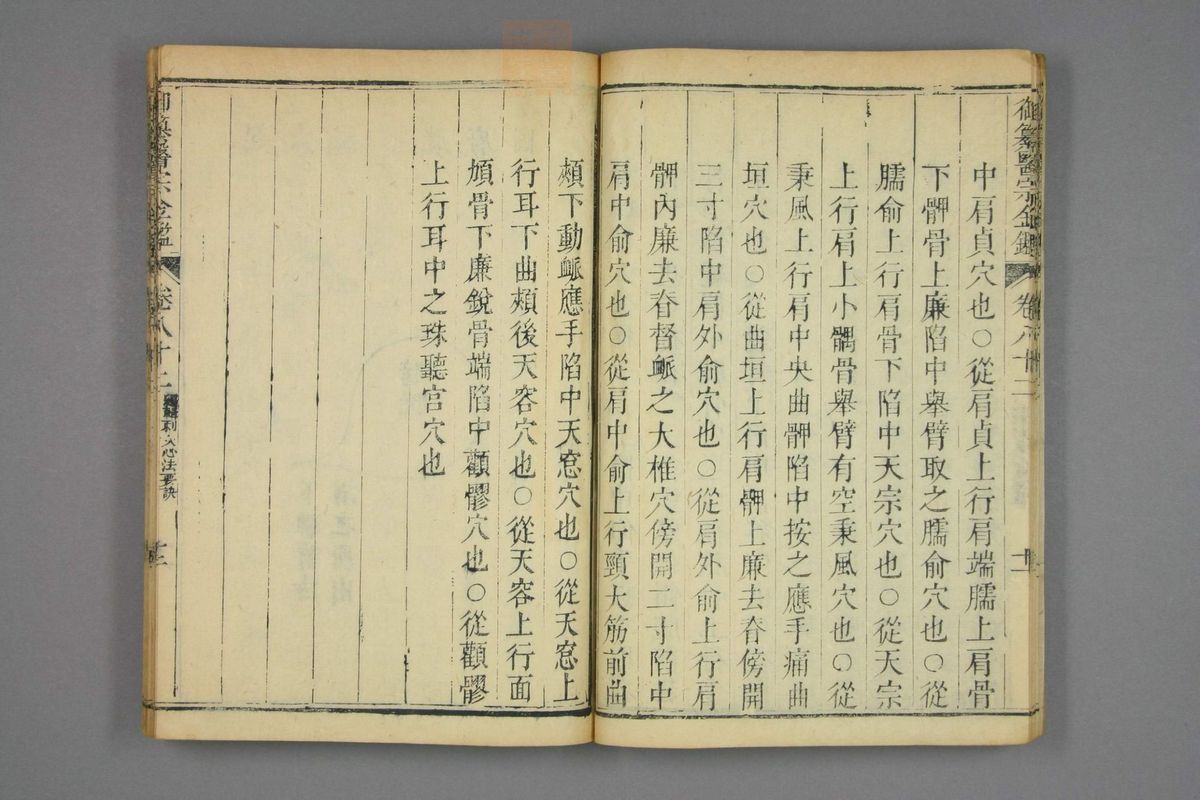 御纂醫宗金鑑
卷八十二
中肩貞穴也○從肩貞上行肩端臑上肩骨
下胛骨上廉陷中舉臂取之臑俞穴也○從
臑俞上行肩骨下陷中天宗穴也○從天宗
上行肩上小髃骨舉臂有空秉風穴也○從
秉風上行肩中央曲胛陷中按之應手痛曲
垣穴也○從曲垣上行肩胛上廉去脊傍開
三寸陷中肩外俞穴也○從肩外俞上行肩
胛內廉去脊督脈之大椎穴傍開二寸陷中
肩中俞穴也○從肩中俞上行頸大筋前曲
頰下動脈應手陷中天窓穴也○從天窓上
行耳下曲頰後天容穴也○從天容上行面
頄骨下廉銳骨端陷中顴髎穴也○從顴髎
上行耳中之珠聽宮穴也
御纂醫宗金鑑
卷八十二
刺灸心法要訣